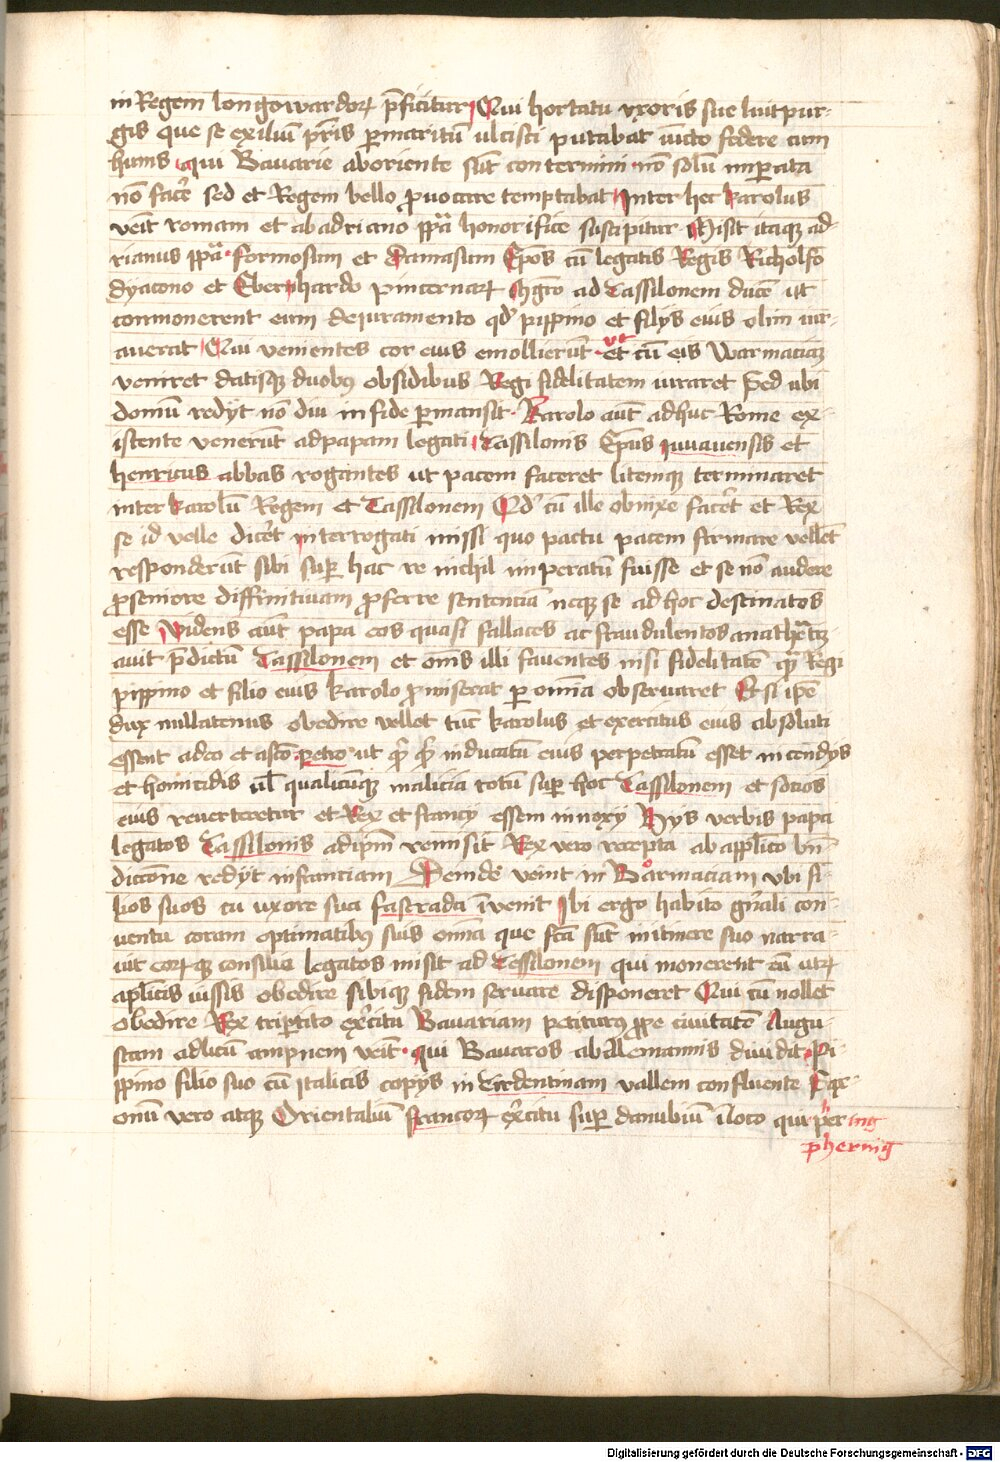 in Regem longowardoꝝ p̄ficitur Qui hortatu vxoris sue luitpur-
gis que se exiliū pr̄is ꝑmaritū ulcisci putabat iūcto federe cum
hunis qui Bavarie aboriente sūt contermini nō solū imꝑata
nō fac̄e sed et Regem bello ꝓvocare temptabat Inter hec karolus
veīt romam et ab adriano ppā honorifice suscipitur Misit itaqꝫ ad
rianus ppā formosum et Damasum Epōs cū legatis Regis Richolfo
dyacono et Eberhardo pincernaꝝ mgr̄o ad Tassilonem ducē ut
conmonerent eum de iuramento qd̓ pippino et filijs eius olim iur-
averat Qui venientes cor eius emollierūt vt et cū eis Warmaciaꝫ
veniret datisqꝫ duobꝰ obsidibus Regi fidelitatem iuraret Sed ubi
domū redijt nō diu in fide ꝑmansit Karolo aūt adhuc Rome ex-
istente venerūt ad papam legati Tassilonis Ep̄us iuvavensis et
henricus abbas rogantes ut pacem faceret litemqꝫ terminaret
inter karolū Regem et Tassilonem Qd̓ cū ille obnixe fac̄et et Rex
se id velle dic̄et interrogati missi quo pactu pacem firmare vellēt
responderūt sibi suꝑ hac re nichil imperatū fuisse et se nō audere
ꝓ seniore diffinitivam ꝓferre sentenciā neqꝫ se ad hoc destinatos
esse Videns aūt papa eos quasi fallaces ac fraudulentos anathēatiz
avit p̄dictū Tassilonem et om̄s illi faventes nisi fidelitatē quā Regi
pippino et filio eius karolo ꝓmiserat ꝑ omīa observaret Et si ip̄e
dux nullatenus obedire vellet tūc karolus et exercitus eius absoluti
essent a deo et a sc̄o petro ut in ducatū eius perpetratū esset in cendijs
et homicidijs ul̄ qualicūqꝫ malicia totū suꝑ hoc Tassilonem et socios
eius reverteretur et Rex et francij essem innoxij Hijs verbis papa
legatos Tassilonis ad ip̄m remisit Rex vero recepta ab apl̄ico bn̄-
diccōne redijt in franciam Deinde venit in Bormaciam vbi fi-
lios suos cū uxore sua fastrada īvenit Ibi ergo habito gn̄ali con-
ventu coram optimatibꝰ suis om̄ia que fc̄a sūt in itinere suo narra-
vit eoꝝqꝫ consilio legatos misit ad Tessilonem qui monerent eū
apl̄icis iussis obedire sibiqꝫ fidem servare disponeret Qui cū nollet
obedire Rex tripertito exc̄itu Bavariam petiturꝰ ꝓpe civitatē Augu-
stam ad licū ampnem veīt qui Bavaros ab Alemannis dividit Pi-
ppino filio suo cū italicis copijs in Tridentinam vallem confluente Sax-
onū vero atqꝫ Orientaliū francoꝝ exc̄itu suꝑ danubiū ī loco qui pher ing
phering
Digitalisierung gefördert durch die Deutsche Forschungsgemeinschaft - DFG